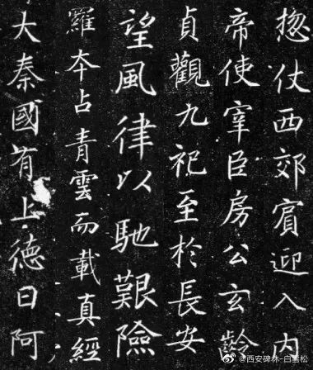 大秦國有上德曰阿
羅夲占青雲而載真經
望風律以馳艱險
貞觀九祀至於長安
帝使宰臣房公玄齡
惣仗西郊賓迎入內
@西安碑林-白雪松